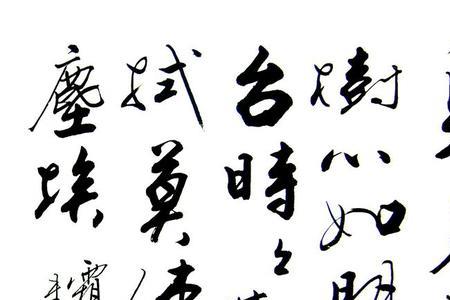 樹心如明
台時々
拭莫使
塵埃
霜